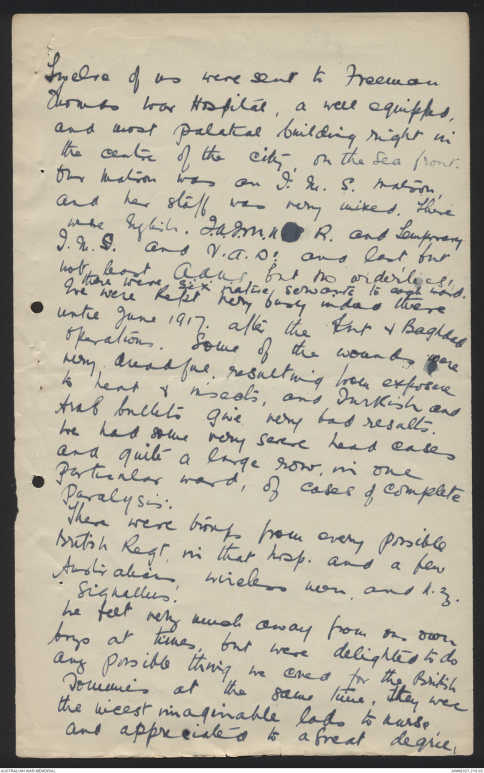 Twelve of us were sent to Freeman
Thomas War Hospital, a well equipped,
and most palatial building right in
the centre of the city, on the sea front.
Our matron was an I. N. S. matron,
and her staff was very mixed. There
were English. Q.A.I.M.N.S. R. and Temporary
I. N. S. and V.A.Ds and last but
not least Aans, but no orderlies,
there were six native servants to each ward.
We were kept very busy indeed there
until June 1917. after the Kut & Baghdad
operations. Some of the wounds were
very, dreadful, resulting from exposure
to heat & insects, and Turkish and
Arab bullets give very bad results.
We had some very severe head cases
and quite a large row, in one
particular ward, of cases of complete
Paralysis.
There were troops from every possible
British Regt, in that hosp. and a few
Australian, wireless men, and N. Z.
Signallers.
We felt very much away from our own
boys at times, but were delighted to do
any possible thing we could for the British
Tommies at the same time, they were
the nicest imaginable lads to nurse
and appreciated to a great degree,
AUSTRALIAN WAR MEMORIAL